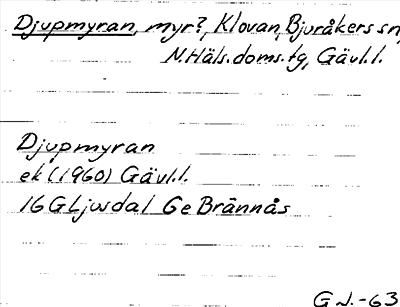 Djupmyran, myr?, Klovan, Bjuråkers sn,
N. Häls. doms. tg, Gävl. l.
Djupmyran
ek (1960) Gävl. l.
16 G Ljusdal 6e Brännås
G J. -63